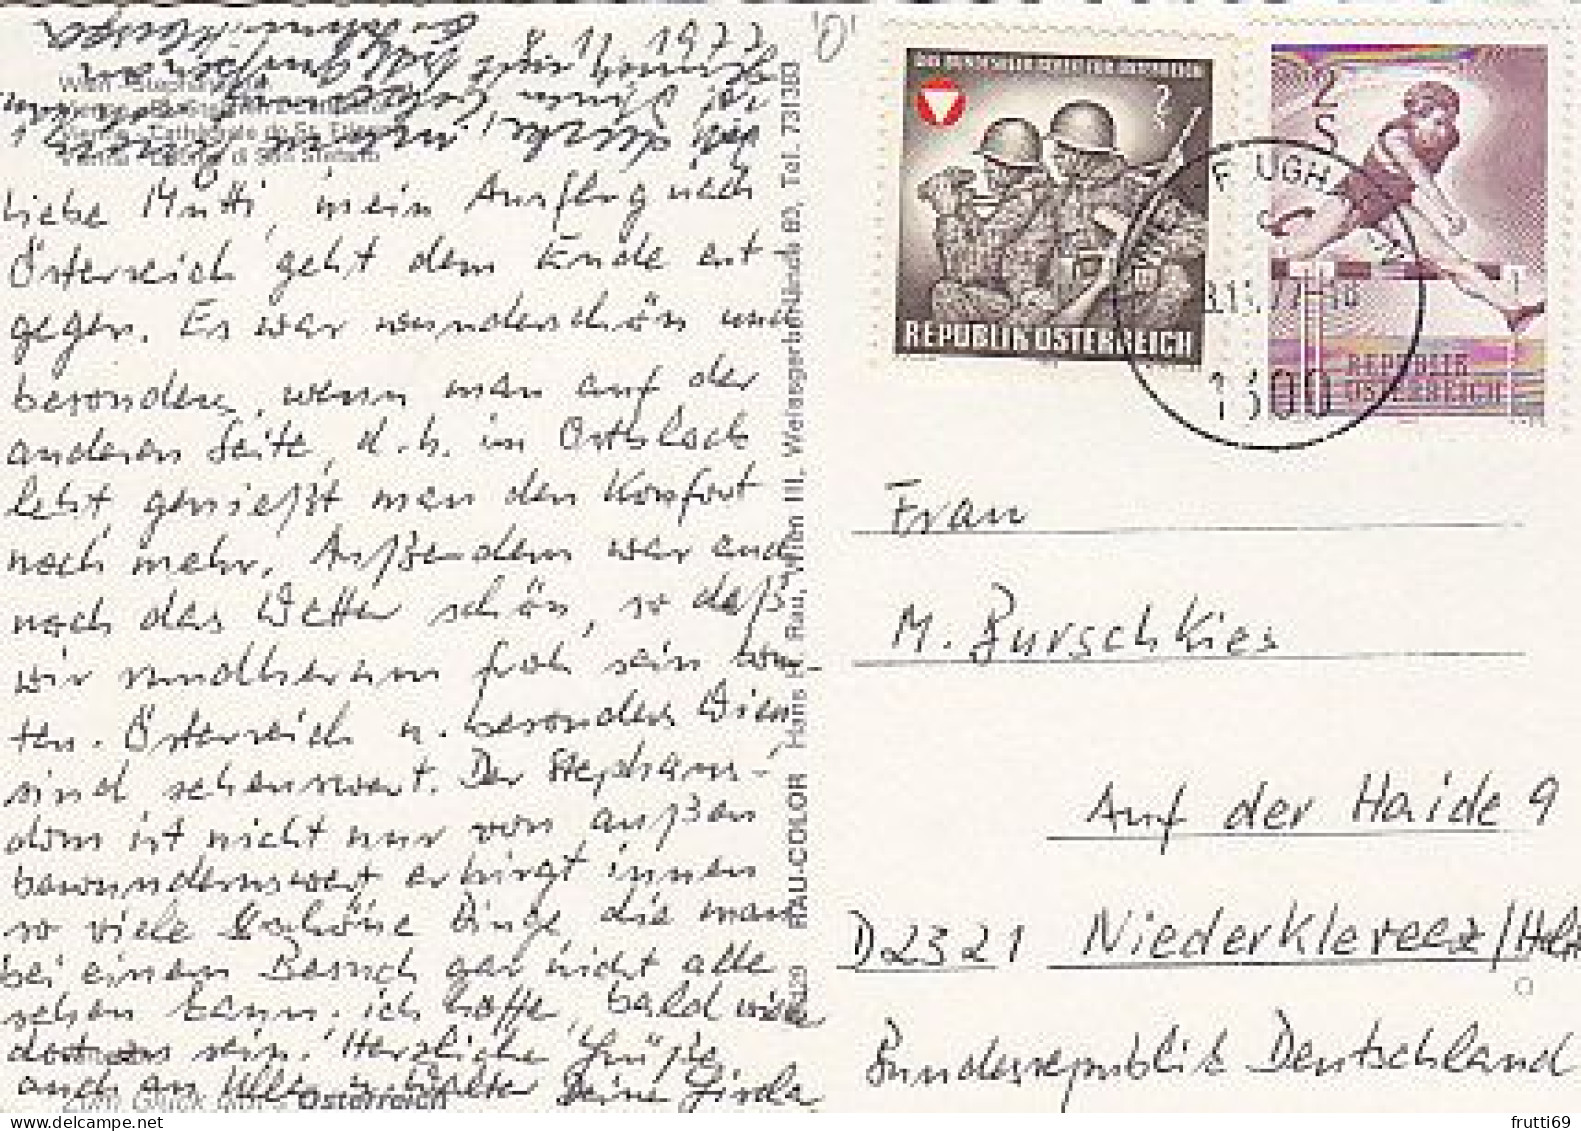 8.11.1977
Wien - Stephansdom
Liebe Mutti, mein Ausflug nach
Österreich geht dem Ende ent-
gegen. Es war wunderschön und
besonders, wenn man auf der
anderen Seite, d.h. in
lebt, genießt man den Komfort
noch mehr. Außerdem war auch
noch das Wetter schön, so daß
wir rundherum froh sein konn-
ten. Österreich u. besonders Wien
sind sehenswert. Der Stephans-
dom ist nicht nur von außen
bewundernswert er birgt innen
so viele schöne Dinge die man
bei einem Besuch gar nicht alle
sehen kann. ich hoffe, bald wieder
dort zu sein. Herzliche Grüße
auch an Deine
Österreich
RAU-COLOR Hans H. Rau, Wien III, Weissgerberlände 60, Tel. 731383
REPUBLIK ÖSTERREICH
2 S
REPUBLIK
ÖSTERREICH
1300
Frau
M. Burschkies
Auf der Haide 9
D2321 Niederkleveez/Holst
Bundesrepublik Deutschland
frutti69